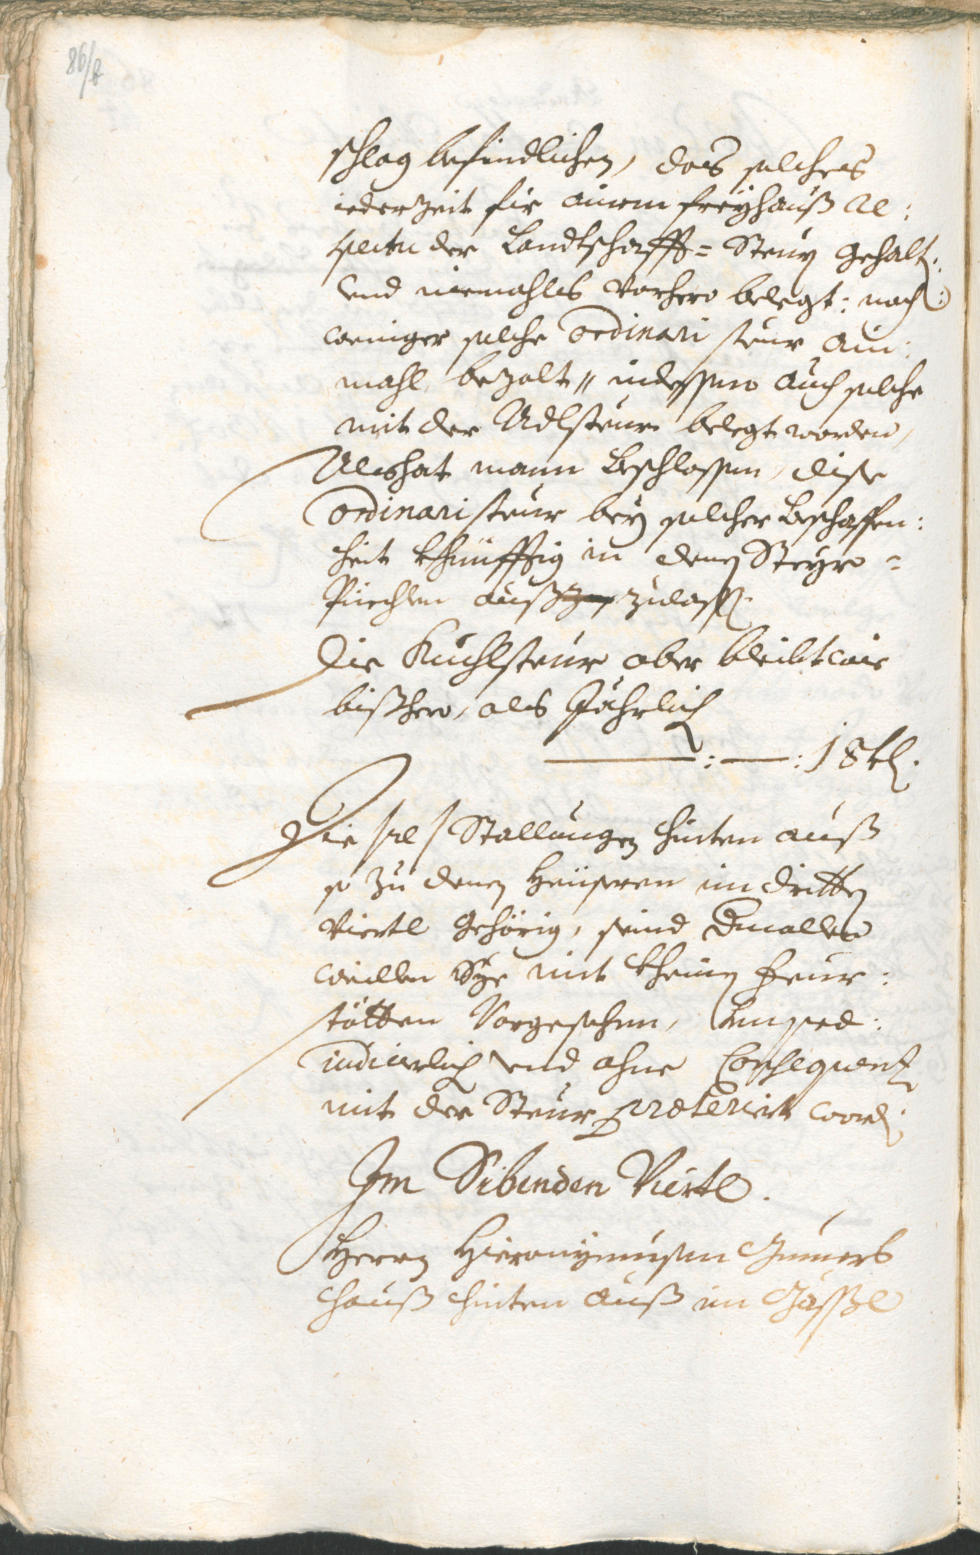 86/2
schlag befindlichen, das solches
iederzeit für ainem freyhauß Re:
spectu der Landtschafft= Steur gehalt:
vnd niemahls vorhero belegt: noch
weniger solche ordinari steur ain:
mahl bezalt, indessen auch solche
mit der Adlsteur belegt worden,
Als hat mann beschlossen, dise
ordinari steur bey solcher beschaffen:
heit khünfftig in denen Steyr=
Püechlen auß zulassen.
Die Kuchlsteur aber bleibt wie
bißhero, als Jährlich
: : 18 kr.
Die Stallungen hinten auß
so zu denen heüsern im dritten
Viertl gehörig, seind
weillen Sye mit kheinen feur:
stötten Vorgesehen, Impraé:
iudicierlich vnd ohne Consequenz
mit der Steur praeteriert word:
Im Sibenden Viertl.
Herrn Hieronymusen
hauß hinten auß im Gässl